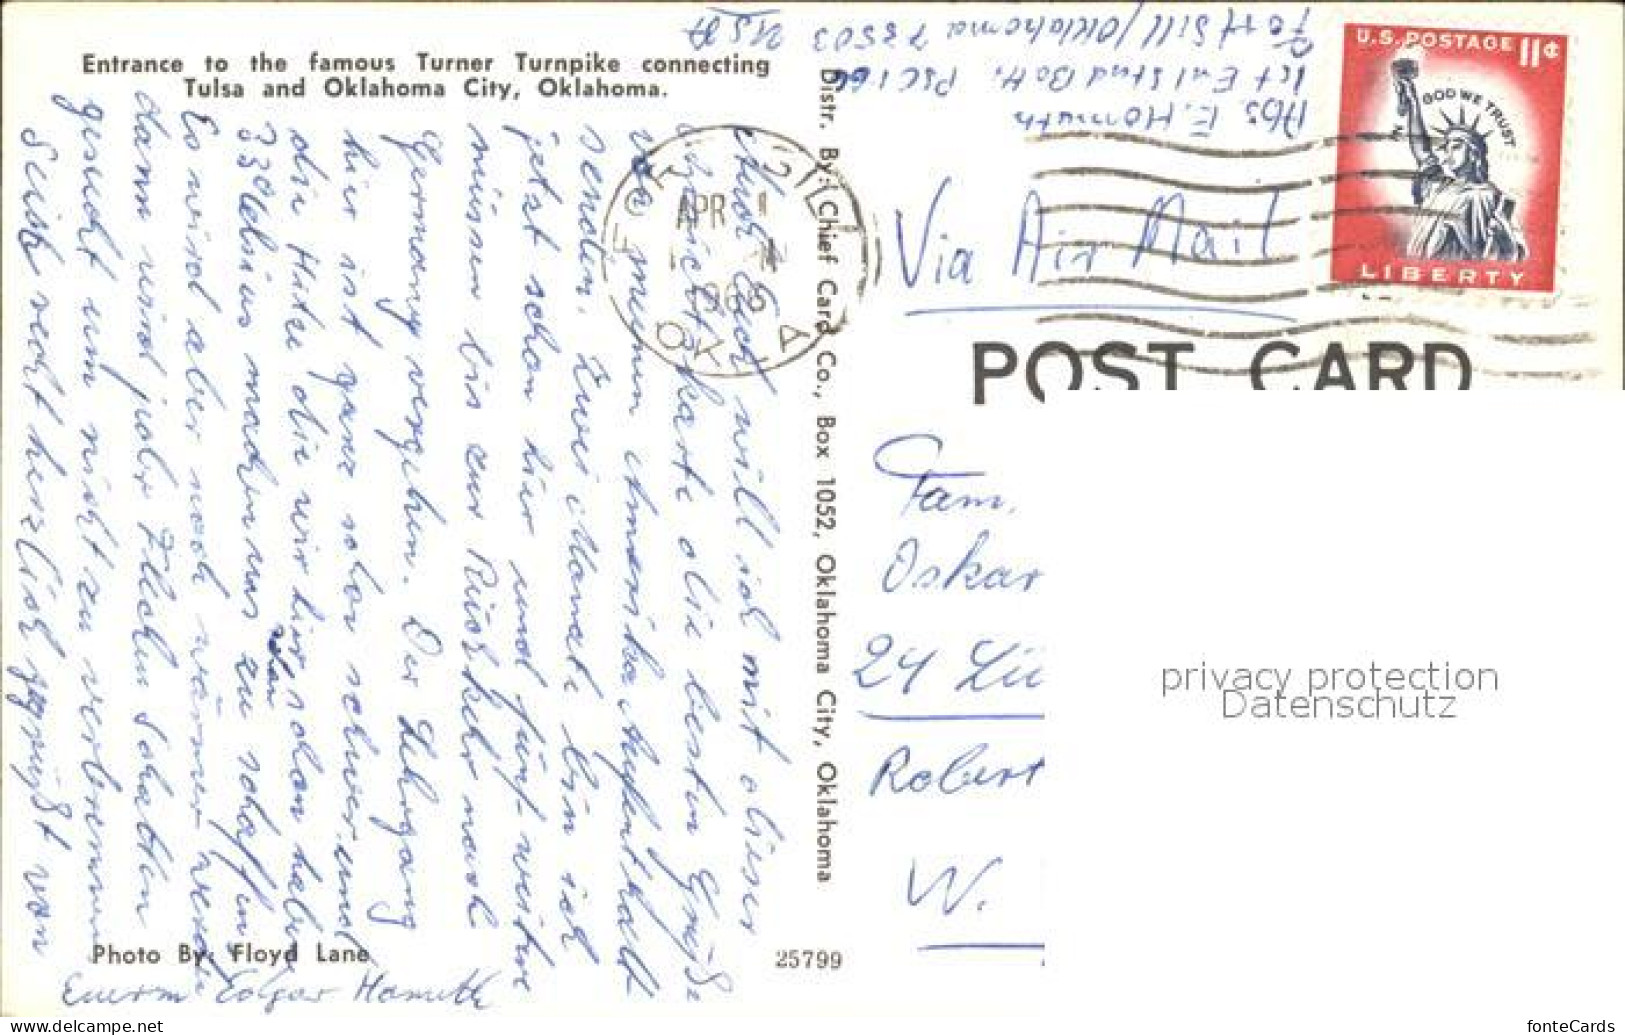 Entrance to the famous Turner Turnpike connecting
Tulsa and Oklahoma City, Oklahoma.
Auch Euch will ich mit dieser
Ansichtskarte die besten Grüße
von meinem Amerika Aufenthalt
senden. Zwei Monate bin ich
jetzt schon hier und fünf weitere
müssen bis zur Rückkehr nach
Germany vergehen. Der Lehrgang
hier ist ganz schön schwer und
die Hitze die wir hier schon haben
33°Celsius machen uns zu schaffen
schon
Es wird aber noch wärmer werden
dann wird jeder Flecken Schatten
gesucht um nicht zu verbrennen
Seid recht herzlich gegrüßt von
Euerm Edgar Homuth
Photo By: Floyd Lane
25799
Distr. By: Chief Card Co., Box 1052, Oklahoma City, Oklahoma
FORT SILL
APR
OKLA
Abs. E. Homuth
1st Enl Stud Batt.
Fort Sill/Oklahoma 73503
USA
U.S. POSTAGE 11¢
IN GOD WE TRUST
LIBERTY
Via Air Mail
POST CARD
Fam.
Oskar
24 Lü
Robert
W.
privacy protection
Datenschutz
www.delcampe.net
fonteCards